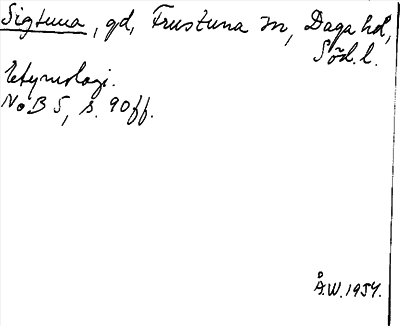 Sigtuna, gd, Frustuna sn, Daga hd,
Södl. l.
Etymologi.
NoB 5, s. 90 ff.
Å.W. 1954.